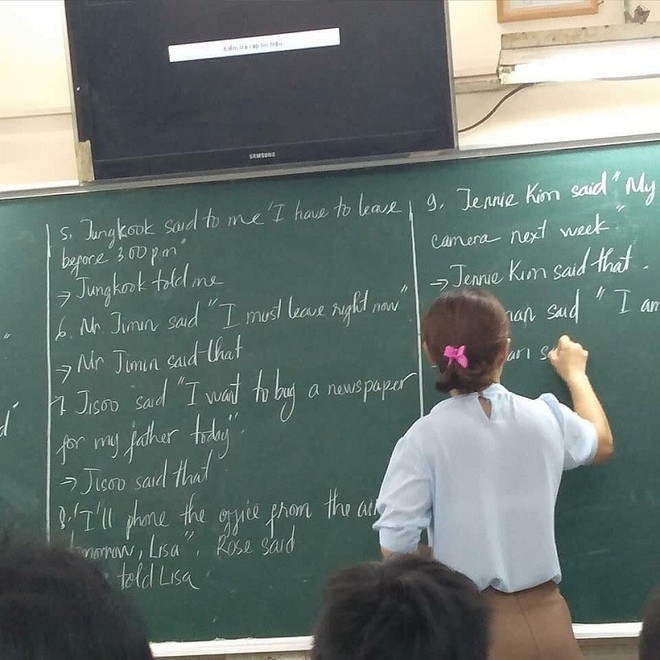 SAMSUNG
5. Jungkook said to me "I have to leave
before 3.00 p.m"
→ Jungkook told me
6. Mr. Jimin said "I must leave right now"
→ Mr Jimin said that
7. Jisoo said "I want to buy a newspaper
for my father today".
→ Jisoo said that
8. "I'll phone the office from the
tomorrow, Lisa". Rose said
told Lisa
9. Jennie Kim said "My
camera next week."
→ Jennie Kim said that.
said "I am